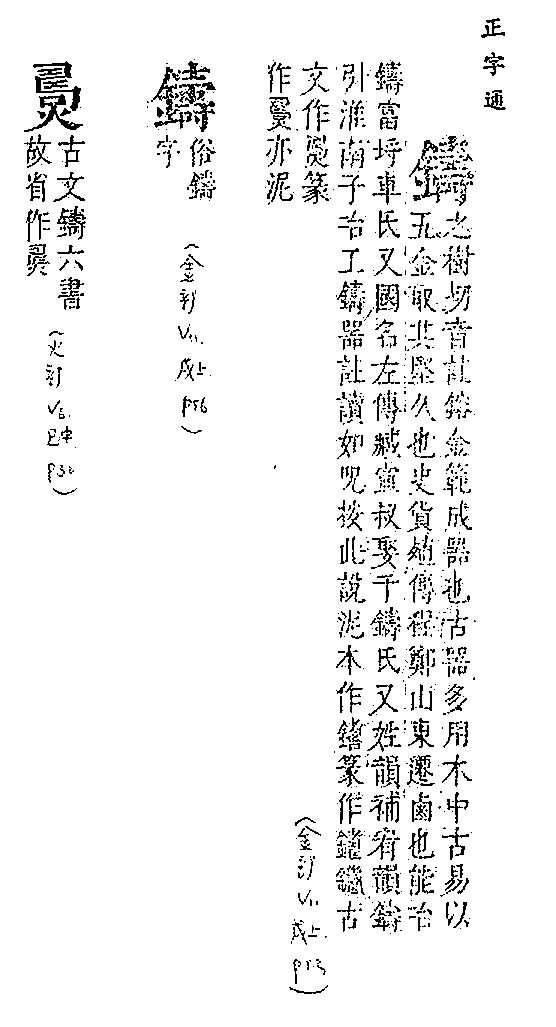 正字通
鑄之樹切音註鎔金範成器也古器多用木中古易以
五金取其堅久也史貨殖傳程鄭山東遷鹵也能冶
鑄富埒車氏又國名左傳臧宣叔娶于鑄氏又姓韻補宥韻鑄
引淮南子冶工鑄器註讀如呪按此說泥本作鑄篆作鑄古
文作篆
作亦泥
(金部 V11. 戌上 p53)
鑄俗鑄
字
(金部 V11. 戌上. p56)
古文鑄六書
故省作
(火部 V6. 巳中 p30)